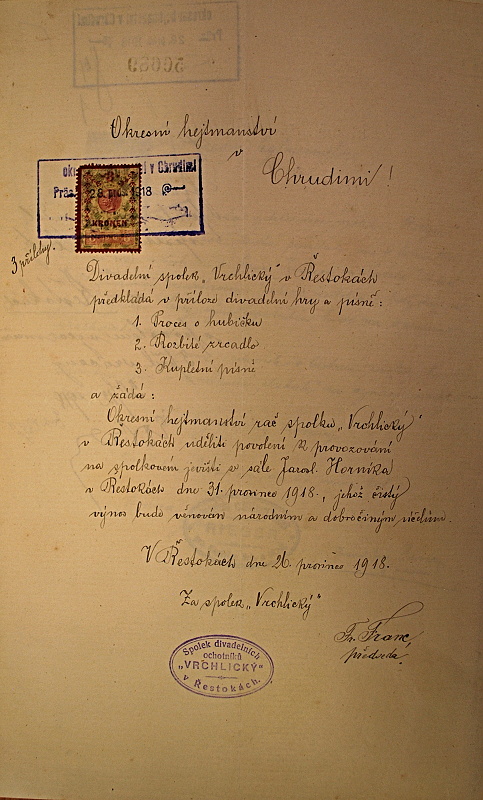 50089
Okresní hejtmanství
v
Chrudimi!
v Chrudimi
Präs. 28. 1918
KRONEN
3 přílohy.
Divadelní spolek „Vrchlický" v Řestokách
předkládá v příloze divadelní hry a písně:
1. Proces o hubičku
2. Rozbité zrcadlo
3. Kupletní písně
a žádá:
Okresní hejtmanství rač spolku „Vrchlický"
v Řestokách uděliti povolení k provozování
na spolkovém jevišti v sále Jarosl. Horníka
v Řestokách dne 31. prosince 1918., jehož čistý
výnos bude věnován národním a dobročinným účelům.
V Řestokách dne 26. prosince 1918.
Za spolek „Vrchlický"
Fr. Franc,
předseda.
Spolek divadelních
ochotníků
„VRCHLICKÝ"
v Řestokách.